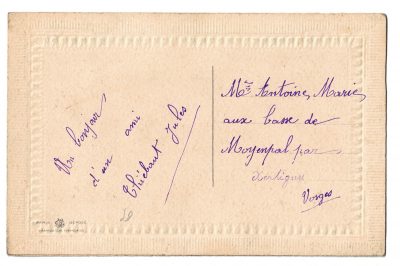 Un bonjour
d'un ami
Thiébaut Jules
Mlle Antoine, Marie,
aux basse de
Moyenpal par
Xertigny
Vosges